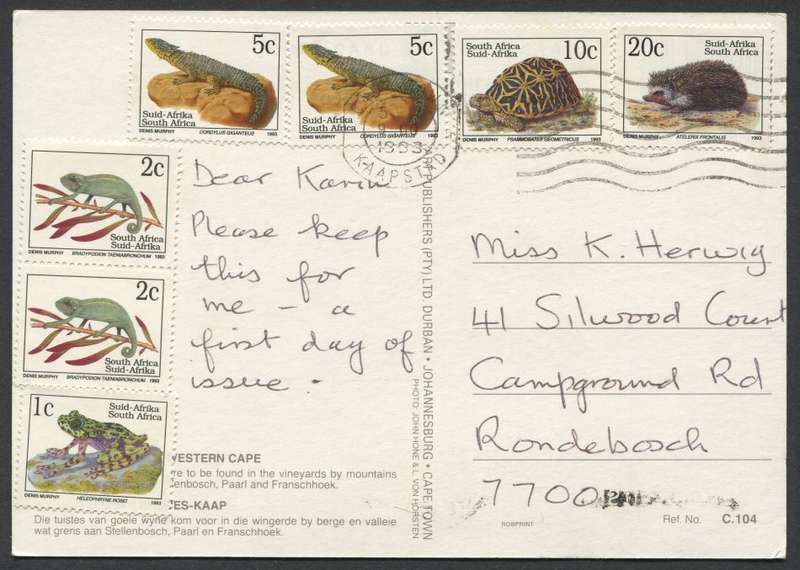 5c
Suid-Afrika
South Africa
DENIS MURPHY CORDYLUS GIGANTEUS 1993
5c
Suid-Afrika
South Africa
DENIS MURPHY CORDYLUS GIGANTEUS 1993
South Africa
Suid-Afrika
10c
DENIS MURPHY PSAMMOBATES GEOMETRICUS 1993
20c
Suid-Afrika
South Africa
DENIS MURPHY ATELERIX FRONTALIS 1993
1993
KAAPSTAD
2c
South Africa
Suid-Afrika
DENIS MURPHY BRADYPODION TAENIABRONCHUM 1993
2c
South Africa
Suid-Afrika
DENIS MURPHY BRADYPODION TAENIABRONCHUM 1993
1c
Suid-Afrika
South Africa
DENIS MURPHY HELEOPHRYNE ROSEI 1993
Dear Karin
Please keep
this for
me - a
first day of
issue.
WESTERN CAPE
to be found in the vineyards by mountains
Paarl and Franschhoek.
ES-KAAP
Die tuistes van goeie wyne kom voor in die wingerde by berge en valleie
wat grens aan Stellenbosch, Paarl en Franschhoek.
ART PUBLISHERS (PTY) LTD. DURBAN • JOHANNESBURG • CAPE TOWN
PHOTO: JOHN HONE & L. VON HORSTEN
Miss K. Herwig
41 Silwood Court
Campground Rd
Rondebosch
7700
ROBPRINT
Ref. No. C.104